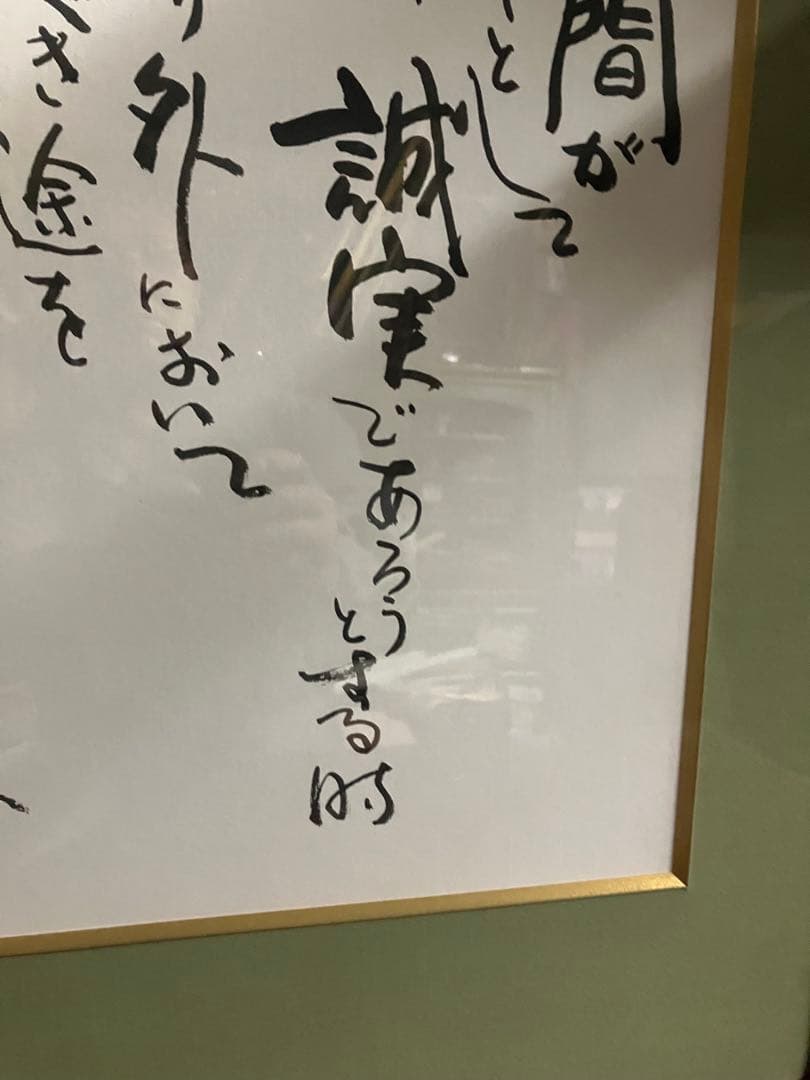 間が
として
誠実であろうとする時
外において
き途を